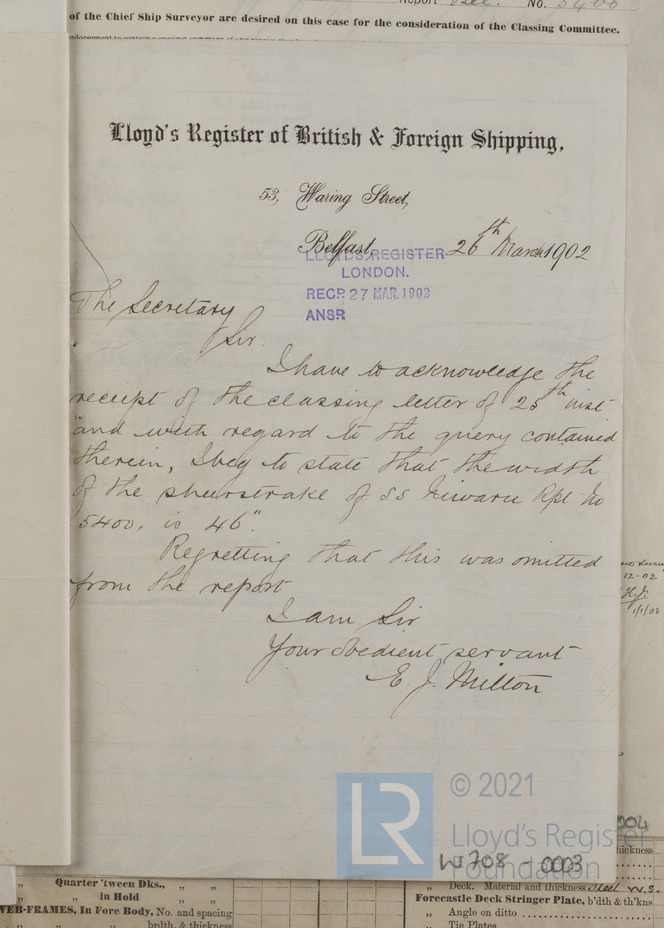 Report Bel. No. 5400
of the Chief Ship Surveyor are desired on this case for the consideration of the Classing Committee.
Lloyd's Register of British & Foreign Shipping,
53, Waring Street,
Belfast, 26th March 1902
LLOYD'S REGISTER
LONDON.
RECD 27 MAR. 1902
ANSR
The Secretary
Sir.
I have to acknowledge the
receipt of the classing letter of 25th inst
and with regard to the query contained
therein, I beg to state that the width
of the sheerstrake of SS Niwaru Rpt No
5400, is 46".
Regretting that this was omitted
from the report
I am Sir
Your obedient servant
E. J. Milton
12.02
1/1/03
© 2021
LR
Lloyd's Register
Foundation
W708 - 0003
Quarter 'tween Dks., „ „
„ in Hold „ „
WEB-FRAMES, In Fore Body, No. and spacing
„ „ brdth. & thickness
thickness
„ Deck. Material and thickness Steel W.S.
Forecastle Deck Stringer Plate, b'dth & th'kns
„ Angle on ditto
„ Tie Plates